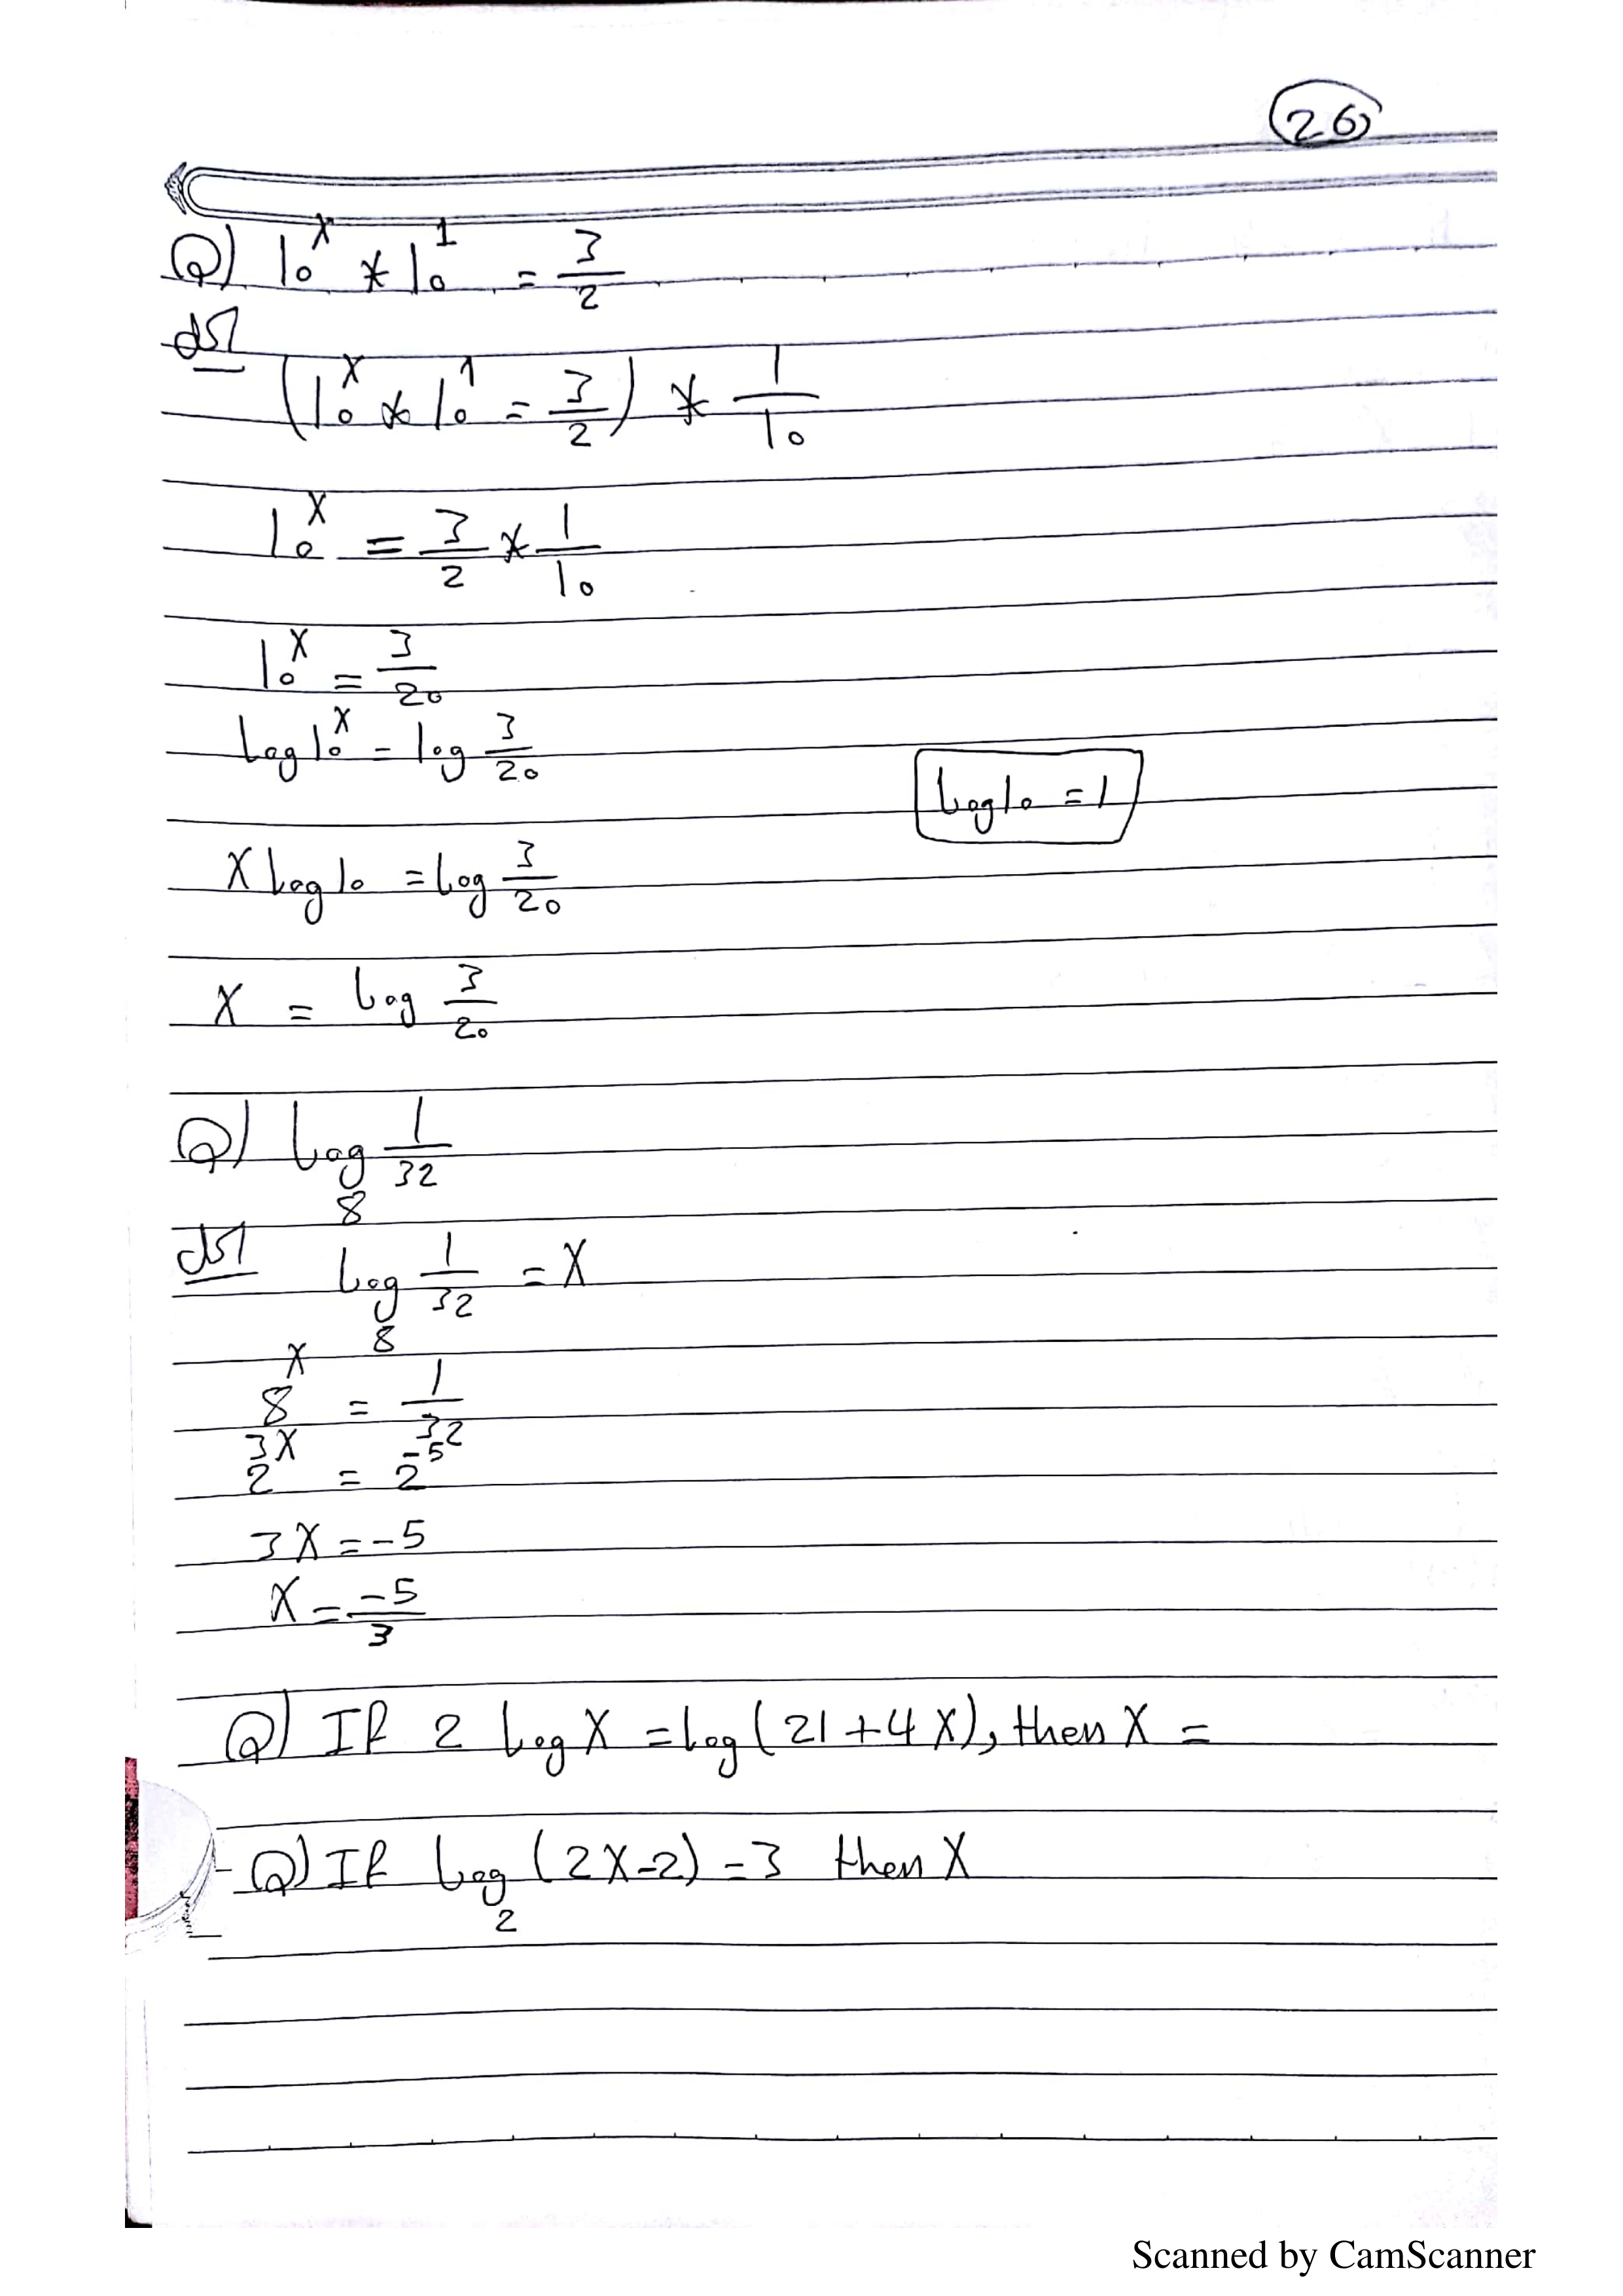 26
Q) 10^x * 10^1 = 3/2
الحل
(10^x * 10^1 = 3/2) * 1/10
10^x = 3/2 * 1/10
10^x = 3/20
Log 10^x = log 3/20
Log 10 = 1
X Log 10 = Log 3/20
X = Log 3/20
Q) Log_8 1/32
الحل Log_8 1/32 = X
8^x = 1/32
2^3X = 2^-5
3X = -5
X = -5/3
Q) If 2 Log X = Log (21 + 4X), then X =
Q) If Log_2 (2X-2) = 3 then X
Scanned by CamScanner